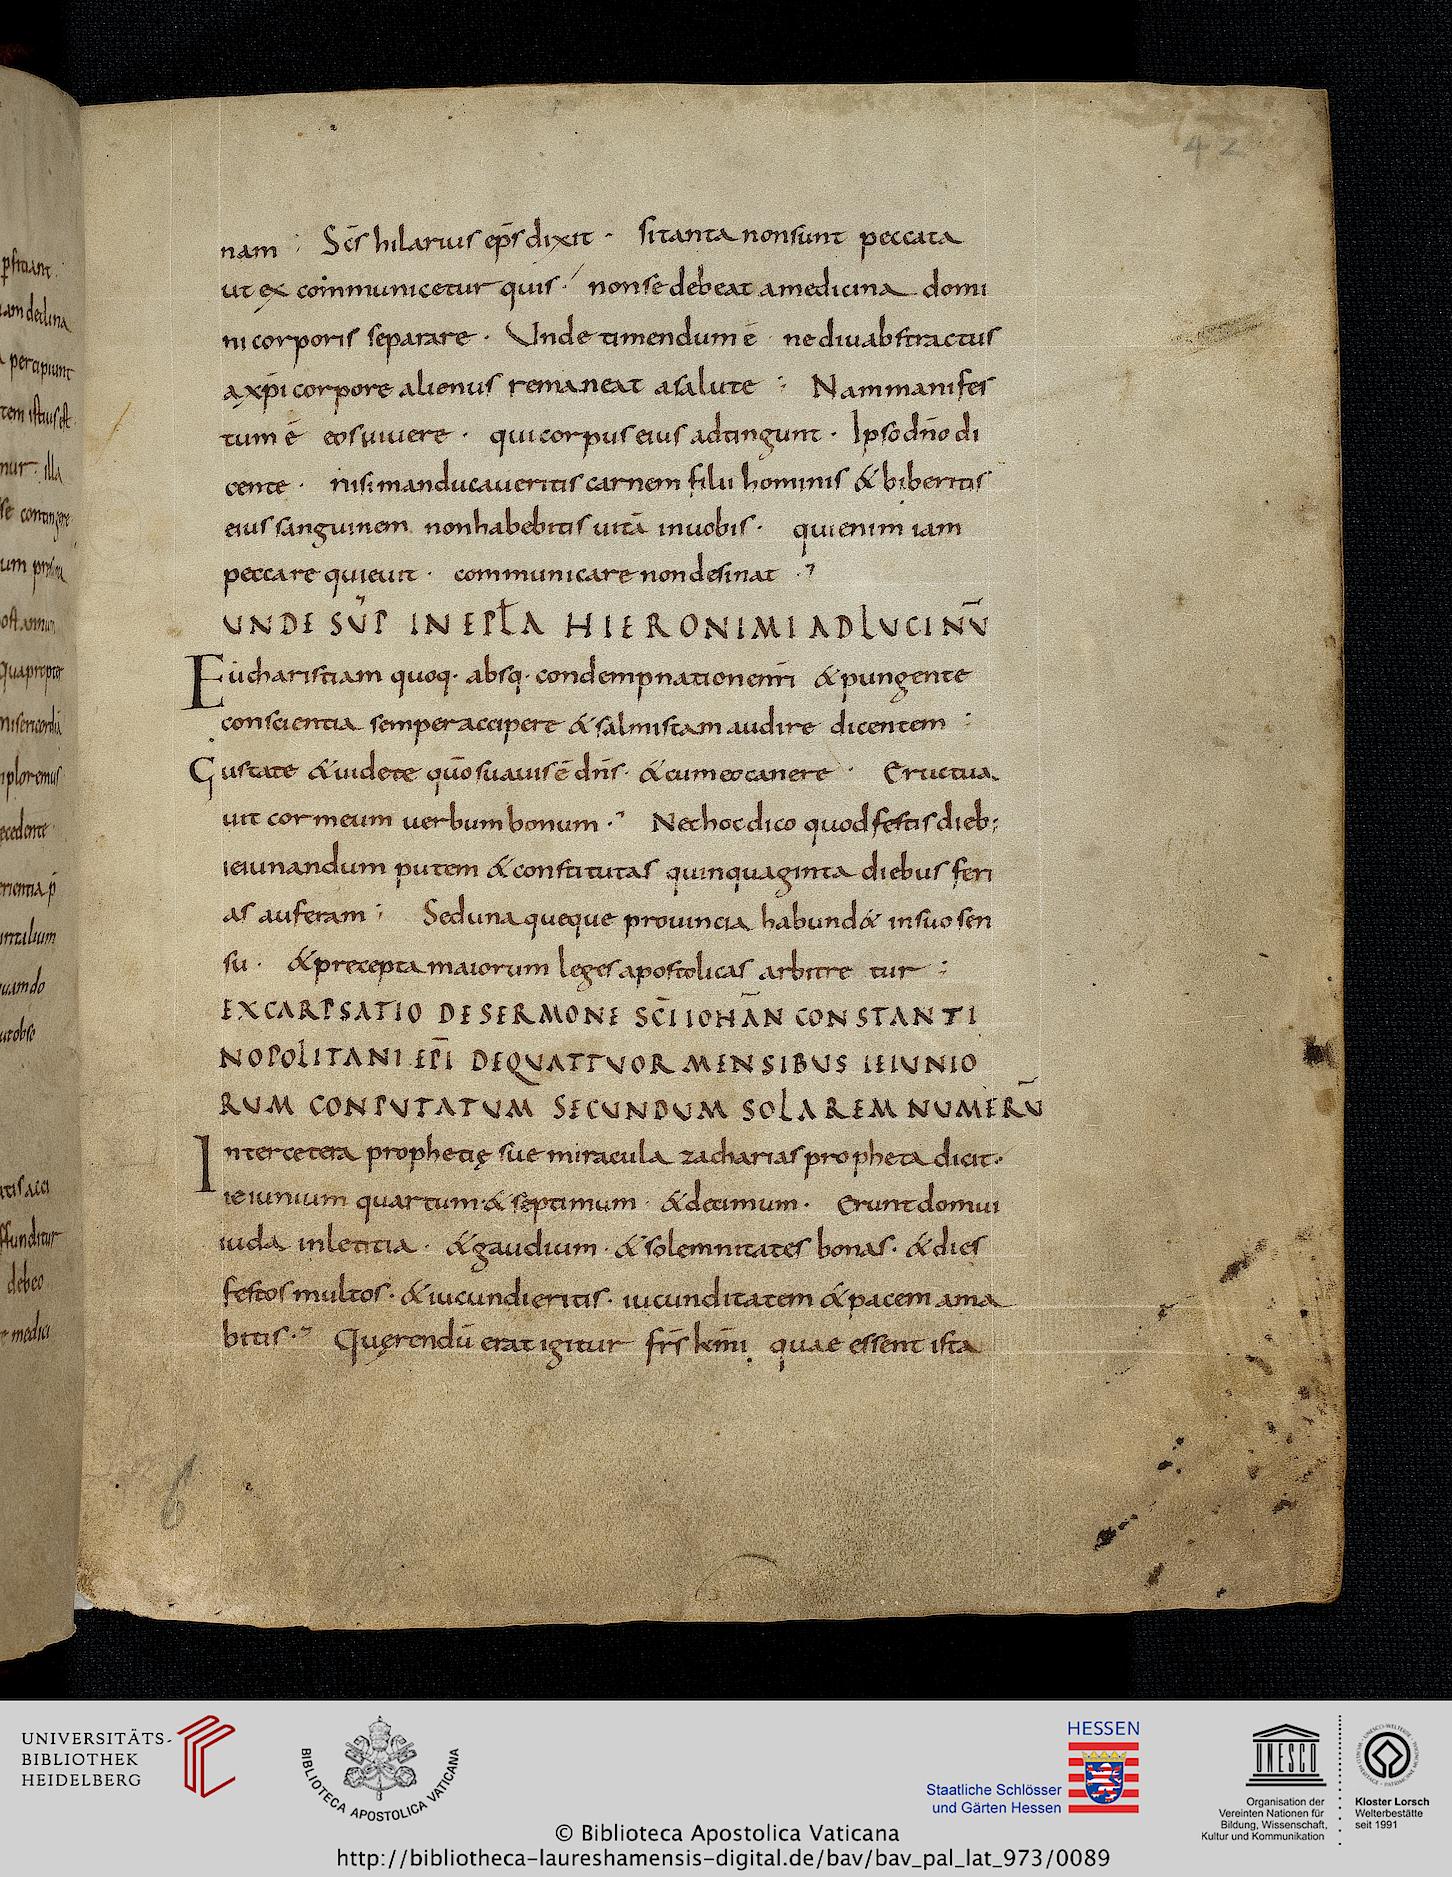 42
nam ; Sc̄s hilarius ep̄s dixit · si tanta non sunt peccata
ut excommunicetur quis · non se debeat a medicina domi
ni corporis separare · Unde timendum ē ne diu abstractus
a xp̄i corpore alienus remaneat a salute ; Nam manifes
tum ē eos uiuere · qui corpus eius adtingunt · Ipso dn̄o di
cente · nisi manducaueritis carnem filii hominis & biberitis
eius sanguinem non habebitis uitā in uobis · qui enim iam
peccare quieuit · communicare non desinat ·
UNDE SUP̄ IN EPLA HIERONIMI AD LUCINŪ
Eucharistiam quoq· absq· condempnatione nr̄i & pungente
conscientia semper accipere & salmistam audire dicentem ;
Gustate & uidete quō suauis ē dn̄s · & cum eo canere · Eructua
uit cor meum uerbum bonum · Nec hoc dico quod festis dieb;
ieiunandum putem & constitutas quinquaginta diebus feri
as auferam ; Sed una queque prouincia habund& in suo sen
su · & precepta maiorum leges apostolicas arbitretur ;
EXCARPSATIO DE SERMONE SC̄I IOHAN̄ CONSTANTI
NOPOLITANI EP̄I DE QUATTUOR MENSIBUS IEIUNIO
RUM CONPUTATUM SECUNDUM SOLAREM NUMERŪ
Inter cetera prophetię sue miracula zacharias propheta dicit ·
ieiunium quartum · & septimum · & decimum · Erunt domui
iuda in letitia · & gaudium · & solemnitates bonas · & dies
festos multos · & iucundi eritis · iucunditatem & pacem ama
bitis · Quęrendū erat igitur fr̄s km̄i quae essent ista
UNIVERSITÄTS-
BIBLIOTHEK
HEIDELBERG
BIBLIOTECA APOSTOLICA VATICANA
HESSEN
Staatliche Schlösser
und Gärten Hessen
UNESCO
Organisation der
Vereinten Nationen für
Bildung, Wissenschaft,
Kultur und Kommunikation
Kloster Lorsch
Welterbestätte
seit 1991
© Biblioteca Apostolica Vaticana
http://bibliotheca-laureshamensis-digital.de/bav/bav_pal_lat_973/0089